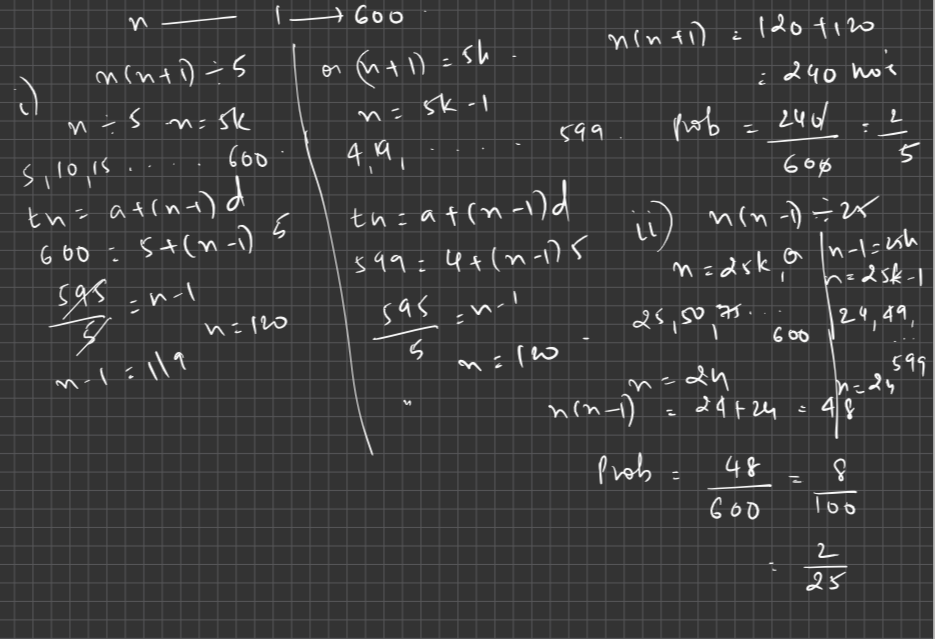 n —— 1 → 600
i) n(n+1) ÷ 5
n ÷ 5 n = 5k
5, 10, 15 . . . . . 600
tn = a + (n-1) d
600 = 5 + (n-1) 5
595/5 = n-1
n = 120
n-1 = 119
or (n+1) = 5k
n = 5k - 1
4, 9, . . . . . 599
tn = a + (n-1)d
599 = 4 + (n-1) 5
595/5 = n-1
n = 120
n(n+1) = 120 + 120
= 240 no's
Prob = 240/600 = 2/5
ii) n(n-1) ÷ 25
n = 25k, or
25, 50, 75 . . . 600
n = 24
n-1 = 25k
n = 25k - 1
24, 49, ... 599
n = 24
n(n-1) = 24 + 24 = 48
Prob = 48/600 = 8/100
= 2/25